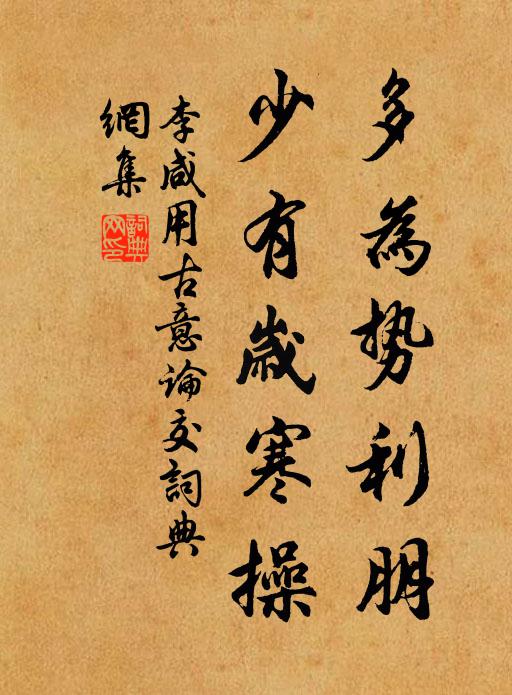 多為势利朋
少有歲寒操
李咸用古意論交詞典
網集
詞典
网印